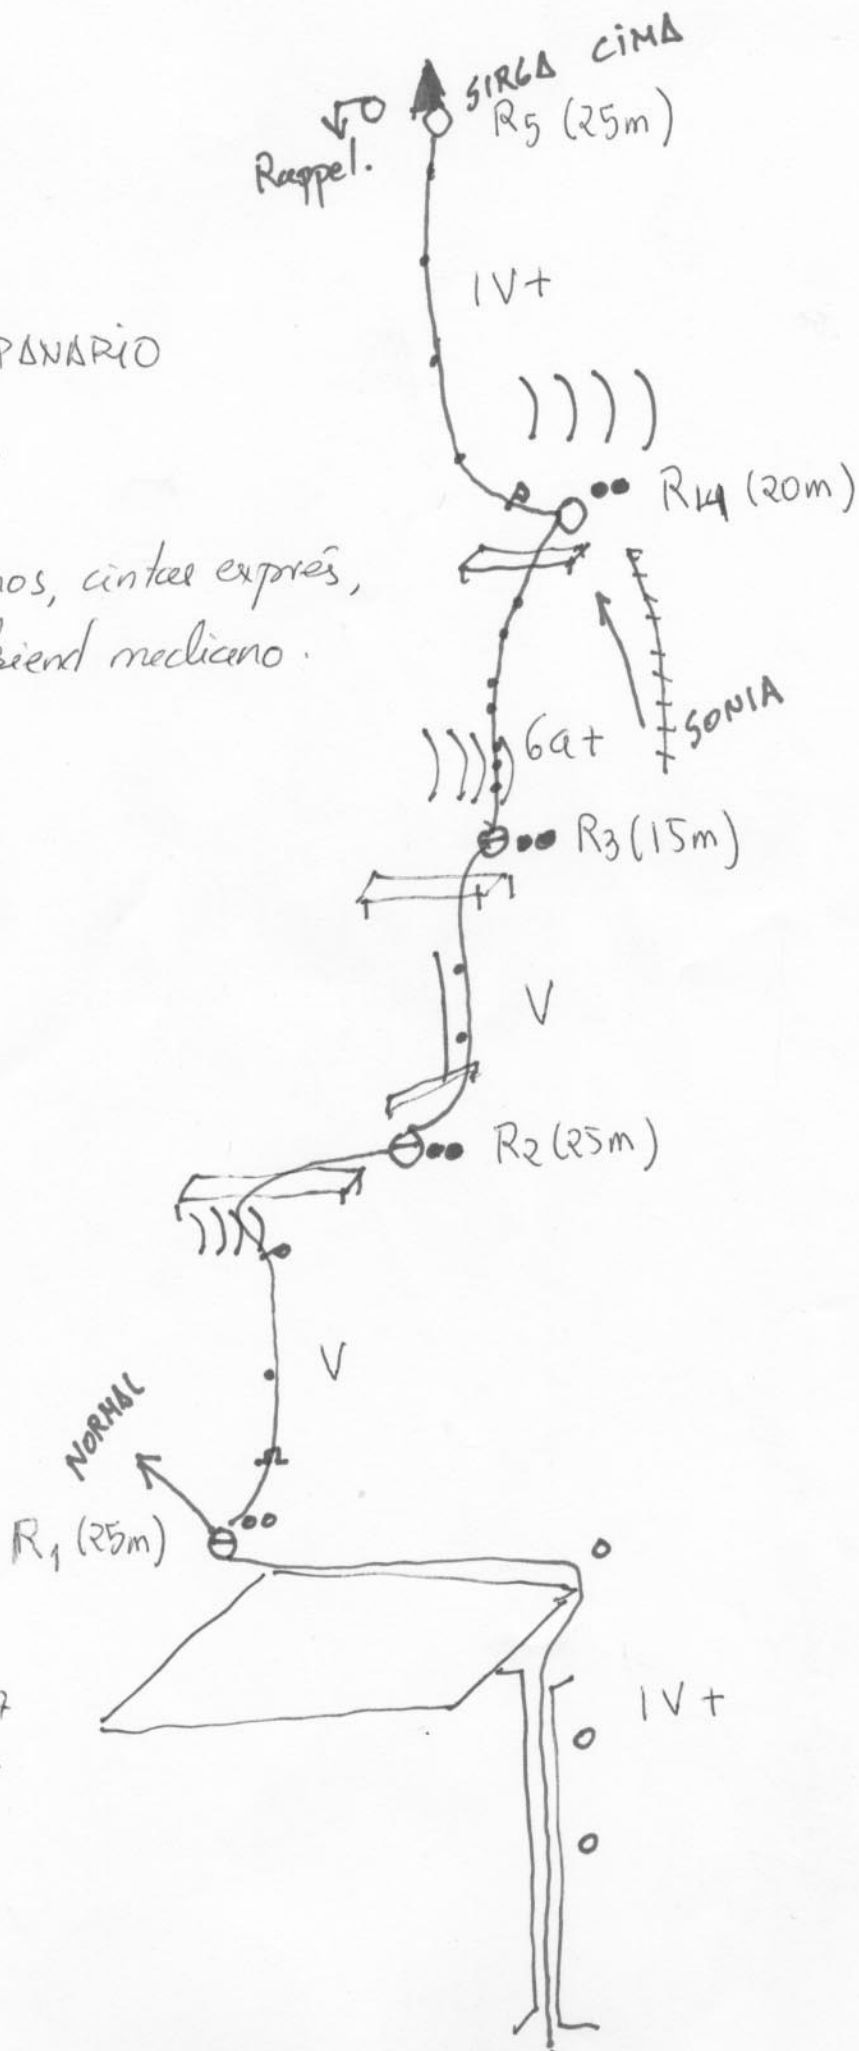 SIRGA CIMA
R5 (25m)
Rappel.
IV+
PANARIO
R4 (20m)
nos, cintas exprés,
biend mediano.
SONIA
6a+
R3 (15m)
V
R2 (25m)
V
NORMAL
R1 (25m)
IV+